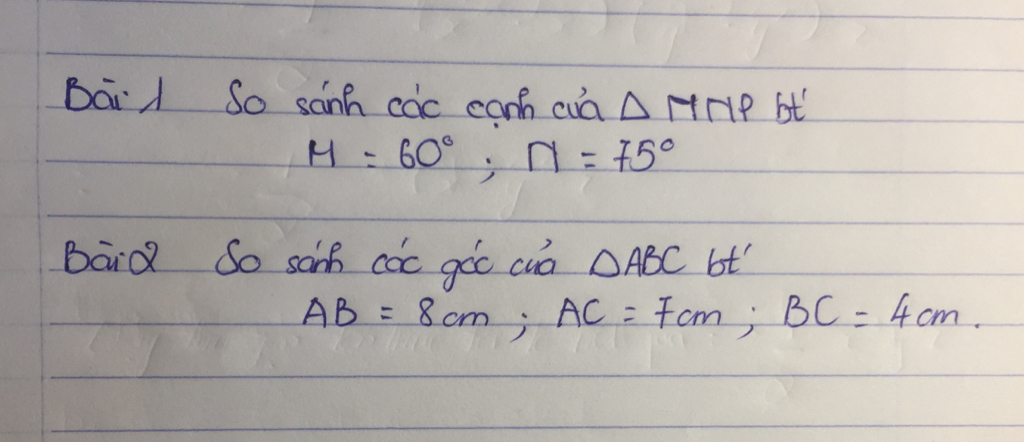 Bài 1 So sánh các cạnh của Δ MNP bt'
M = 60° ; N = 75°
Bài 2 So sánh các góc của ΔABC bt'
AB = 8cm ; AC = 7cm ; BC = 4cm .